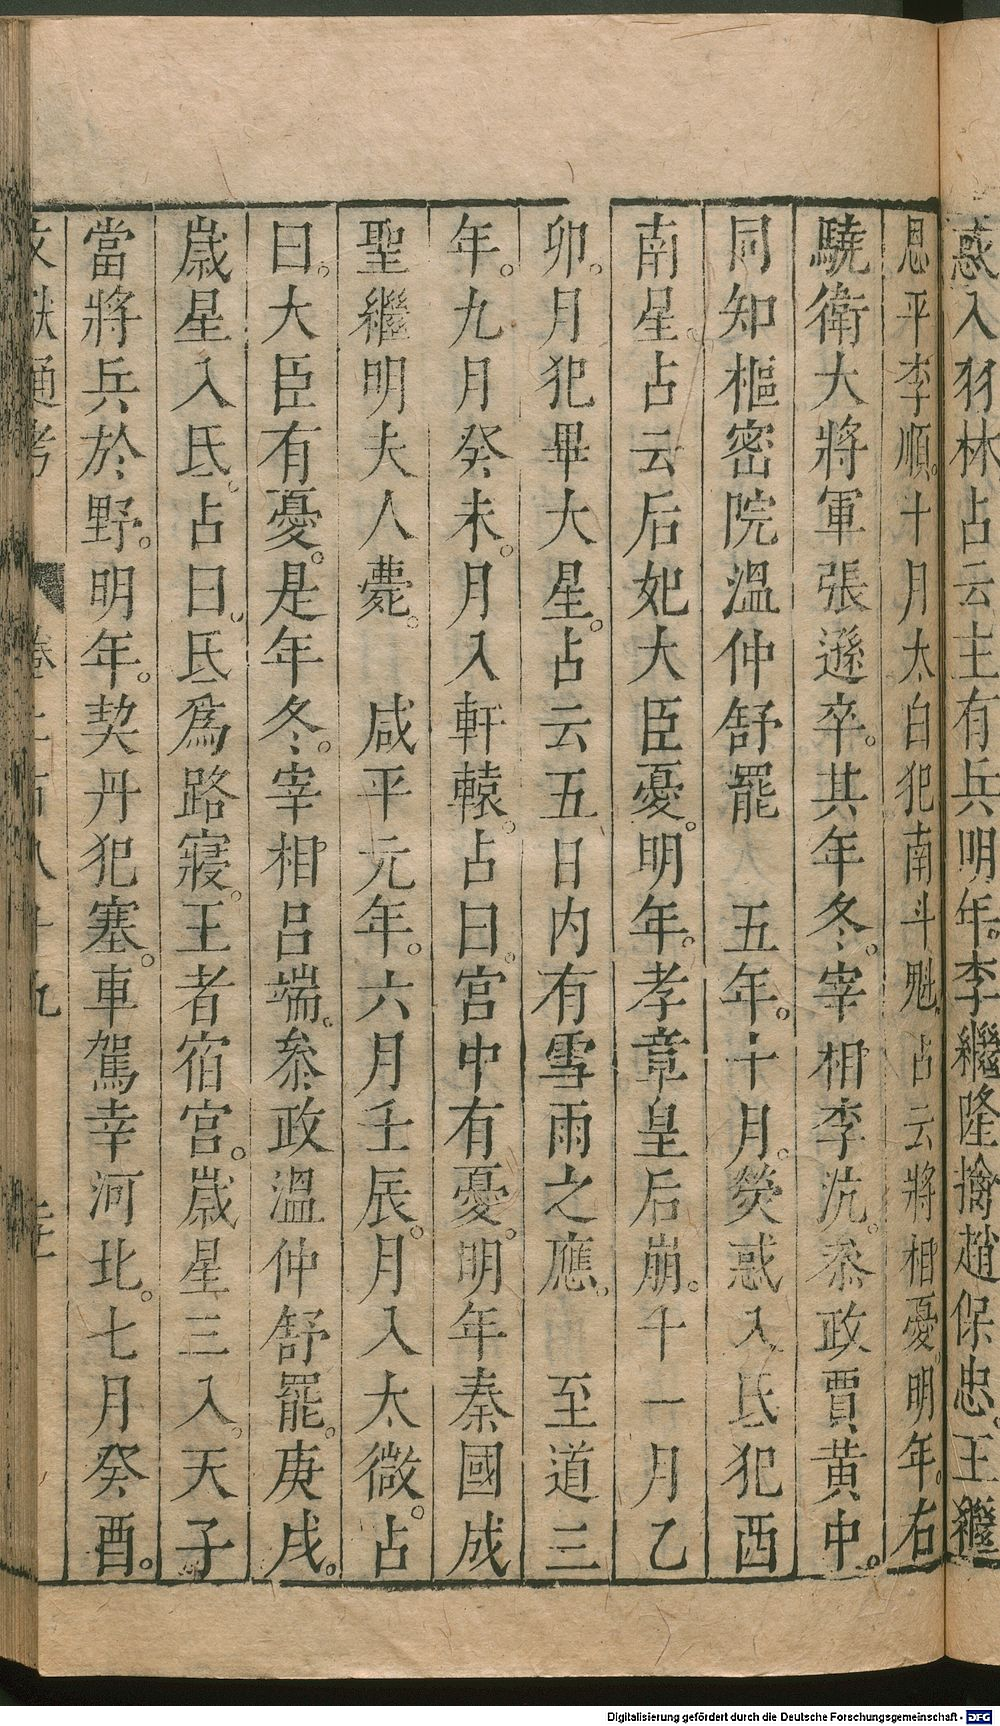 惑入羽林占云主有兵明年。李繼隆擒趙保忠。王繼
恩平李順。十月太白犯南斗魁。占云將相憂。明年。右
驍衛大將軍張遜卒。其年冬。宰相李沆。叅政賈黃中。
同知樞密院溫仲舒罷　五年。十月。熒惑入氐犯西
南星。占云后妃大臣憂。明年。孝章皇后崩。十一月乙
卯。月犯畢大星。占云五日內有雪雨之應。　至道三
年。九月癸未。月入軒轅。占曰。宮中有憂。明年秦國成
聖繼明夫人薨。　咸平元年。六月壬辰。月入太微。占
曰。大臣有憂。是年冬。宰相呂端。叅政溫仲舒罷。庚戌。
歲星入氐。占曰。氐爲路寢。王者宿宮。歲星三入。天子
當將兵於野。明年。契丹犯塞。車駕幸河北。七月癸酉。
通考
Digitalisierung gefördert durch die Deutsche Forschungsgemeinschaft - DFG